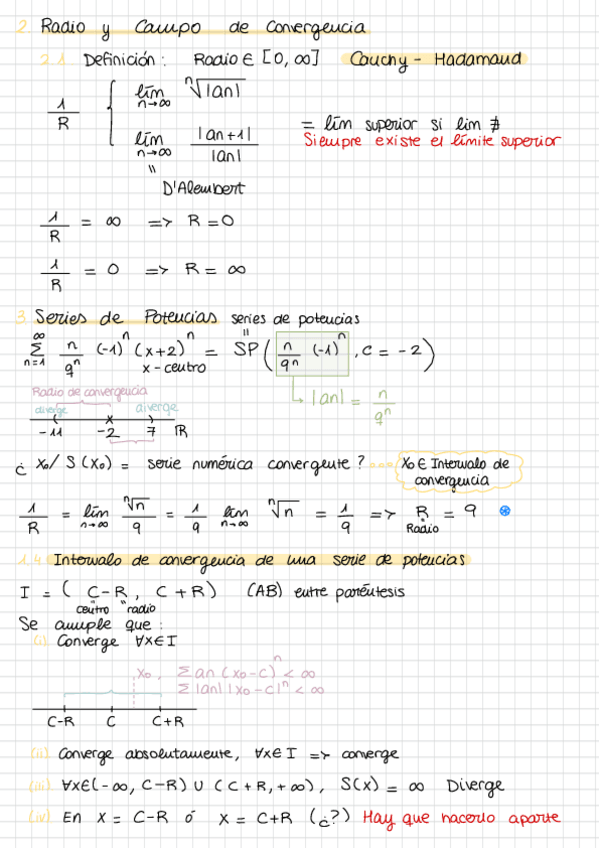 2. Radio y Campo de Convergencia
2.1 Definición: Radio ∈ [0, ∞] Cauchy - Hadamaud
1/R { lím n→∞ ⁿ√|an|
lím n→∞ |an+1|/|an| = lím superior si lim ∄
Siempre existe el límite superior
"
D'Alembert
1/R = ∞ => R = 0
1/R = 0 => R = ∞
3. Series de Potencias series de potencias
∞ Σ n=1 n/9ⁿ (-1)ⁿ (x+2)ⁿ = SP ( n/9ⁿ (-1)ⁿ, c = -2 )
x - centro
|an| = n/9ⁿ
Radio de convergencia
diverge diverge
-11 -2 7 R
¿ x₀/ S(x₀) = serie numérica convergente? ... x₀ ∈ Intervalo de convergencia
1/R = lím n→∞ ⁿ√n/9 = 1/9 lím n→∞ ⁿ√n = 1/9 => R = 9
Radio
1.4 Intervalo de convergencia de una serie de potencias
I = ( C-R, C+R ) (AB) entre paréntesis
centro radio
Se cumple que:
(i) Converge ∀x∈I
x₀, Σ an (x₀-c)ⁿ < ∞
Σ |an| |x₀-c|ⁿ < ∞
C-R C C+R
(ii) Converge absolutamente, ∀x∈I => converge
(iii) ∀x∈(-∞, C-R) ∪ (C+R, +∞), S(x) = ∞ Diverge
(iv) En x = C-R ó x = C+R (¿?) Hay que hacerlo aparte